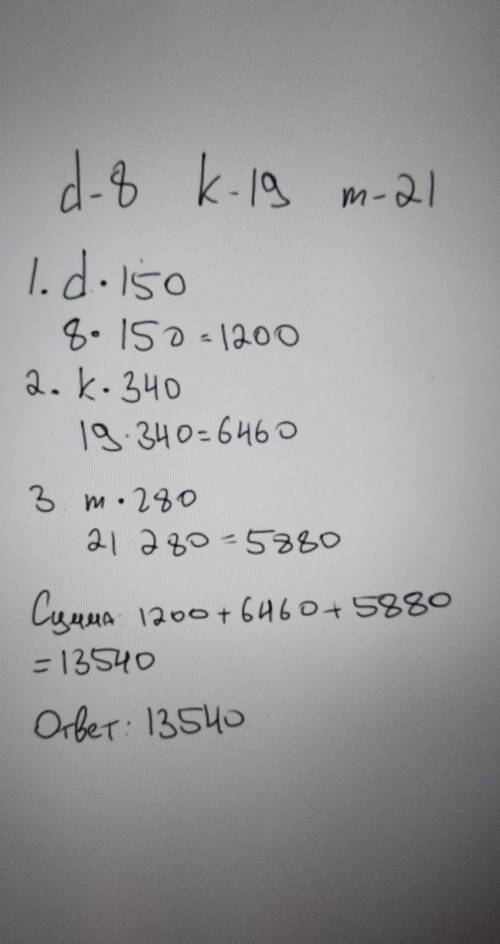 d-8 k-19 m-21
1. d · 150
8 · 150 = 1200
2. k · 340
19 · 340 = 6460
3 m · 280
21 280 = 5880
Сумма: 1200 + 6460 + 5880
= 13540
Ответ: 13540